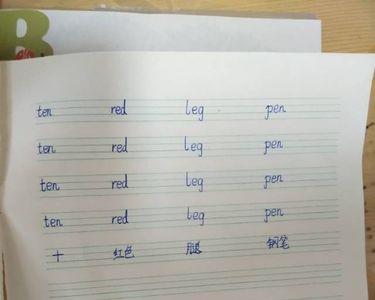 B
ten red leg pen
ten red leg pen
ten red leg pen
ten red leg pen
十 红色 腿 钢笔